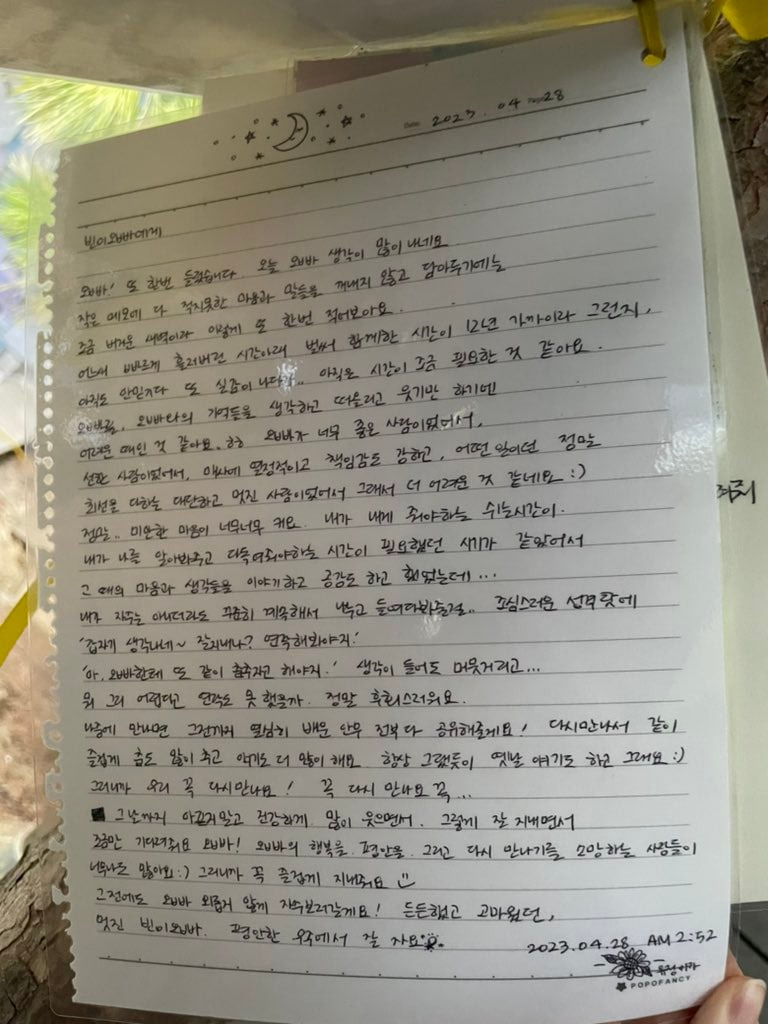 Date. 2023. 04 Page. 28
빈이오빠에게
오빠! 또 한번 들렀습니다. 오늘 오빠 생각이 많이 나네요
작은 메모에 다 적지못한 마음과 말들을 꺼내지 않고 담아두기에는
조금 버거운 새벽이라 이렇게 또 한번 적어보아요.
어느새 빠르게 흘러버린 시간아래 벌써 함께한 시간이 12년 가까이라 그런지,
아직도 안믿기다 또 실감이 나다가.. 아직은 시간이 조금 필요한 것 같아요.
오빠를, 오빠와의 기억들을 생각하고 떠올리고 웃기만 하기엔
어려운 때인 것 같아요. ㅎㅎ 오빠가 너무 좋은 사람이었어서,
선한 사람이었어서, 매사에 열정적이고 책임감도 강하고, 어떤 일이던 정말
최선을 다하는 대단하고 멋진 사람이었어서 그래서 더 어려운 것 같네요 :)
정말.. 미안한 마음이 너무너무 커요. 내가 내게 줘야하는 쉬는시간이.
내가 나를 알아봐주고 다독여줘야하는 시간이 필요했던 시기가 같았어서
그 때의 마음과 생각들을 이야기하고 공감도 하고 했었는데...
내가 자주는 아니더라도 꾸준히 계속해서 먼저 들여다봐줄걸.. 조심스러운 성격탓에
'갑자기 생각나네~ 잘지내나? 연락해봐야지.'
'아, 오빠한테 또 같이 춤추자고 해야지.' 생각이 들어도 머뭇거리고...
뭐 그리 어렵다고 연락도 못 했을까. 정말 후회스러워요.
나중에 만나면 그전까지 열심히 배운 안무 전부 다 공유해줄게요! 다시만나서 같이
즐겁게 춤도 많이 추고 얘기도 더 많이 해요 항상 그랬듯이 옛날 얘기도 하고 그래요 :)
그러니까 우리 꼭 다시만나요! 꼭 다시 만나요 꼭...
그날까지 아프지말고 건강하게 많이 웃으면서. 그렇게 잘 지내면서
조금만 기다려줘요 오빠! 오빠의 행복을. 평안을. 그리고 다시 만나기를 소망하는 사람들이
너무나도 많아요 :) 그러니까 꼭 즐겁게 지내줘요
그전에도 오빠 외롭지 않게 자주보러갈게요! 든든했고 고마웠던,
멋진 빈이오빠. 평안한 우주에서 잘 자요
2023.04.28 AM 2:52
POPOFANCY